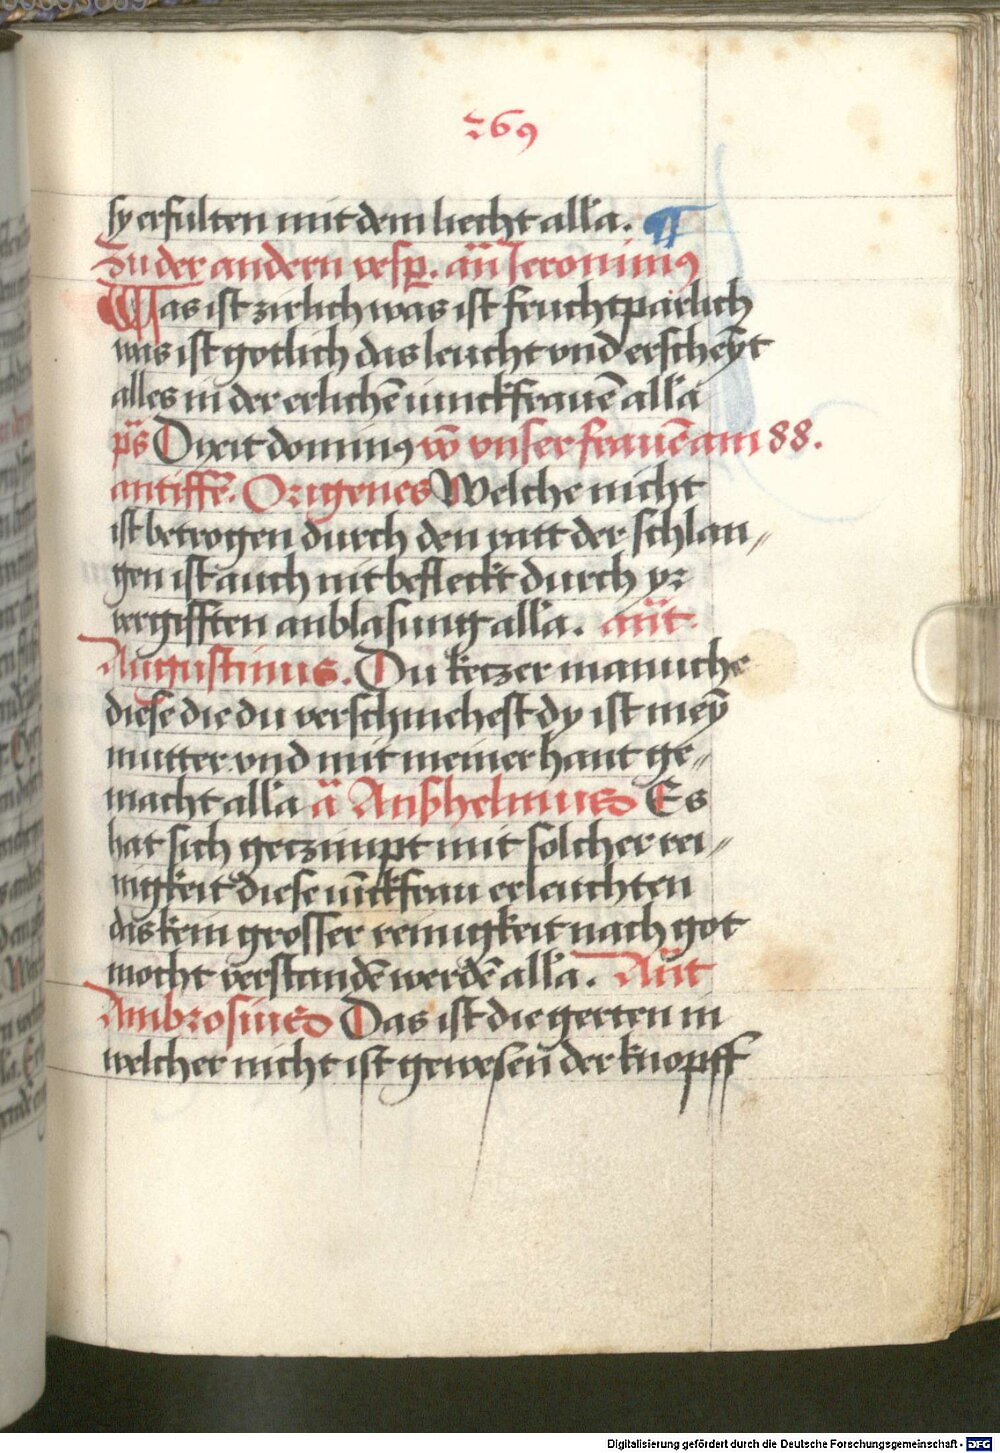 269
sy erfulten mit dem liecht alla. ¶
Zu der andern vesp. an̄ Jeronimus
Was ist zirlich was ist fruchtparlich
was ist gotlich das leucht vnd erscheȳt
alles in der erlichē iunckfrauē alla
ps̄ Dixit dominus vō vnser frauē am 88.
antiffē. Origenes Welche nicht
ist betrogen durch den ratt der schlan„
gen ist auch nit befleckt durch yr
vergifften anblasung alla. an̄t.
Augustinus. Du ketzer maniche
diese die du verschmehest dy ist meȳ
mutter vnd mit meiner hant ge„
macht alla ā Anßhelmus Es
hat sich geczimpt mit solcher rei„
nigkeit diese iūckfrau erleuchten
das kein grosser reinigkeit nach got
mocht verstandē werdē alla. An̄t
Ambrosius Das ist die gerten in
welcher nicht ist gewesen̄ der knopff
Digitalisierung gefördert durch die Deutsche Forschungsgemeinschaft - DFG